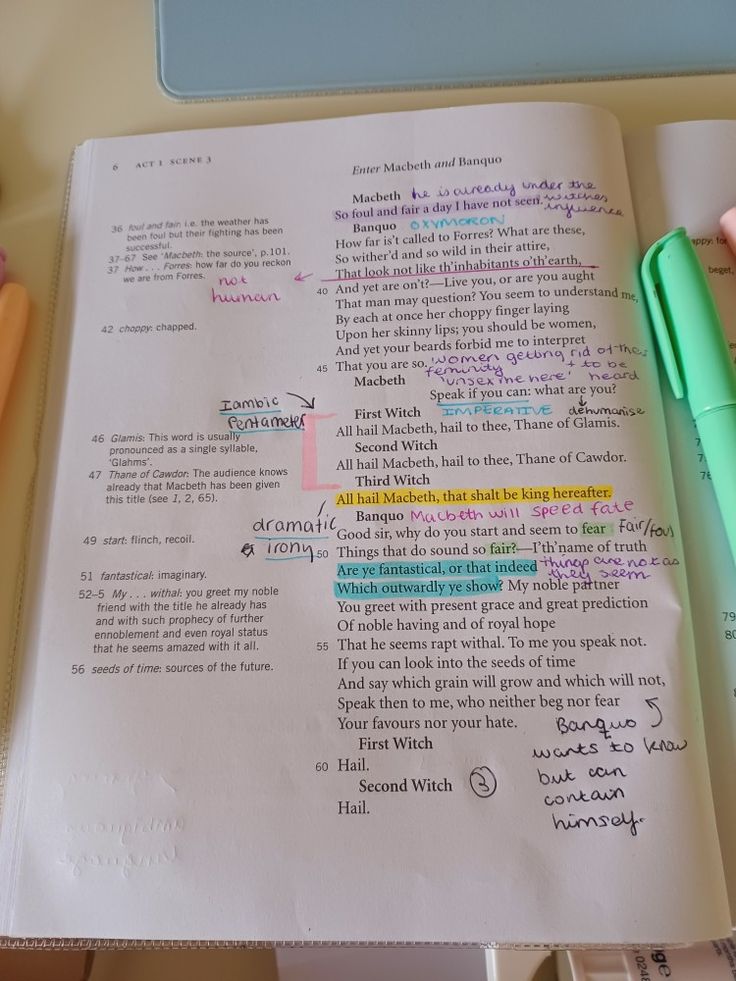 6 ACT 1 SCENE 3
Enter Macbeth and Banquo
36 foul and fair i.e. the weather has
been foul but their fighting has been
successful.
37–67 See 'Macbeth: the source', p.101.
37 How . . . Forres: how far do you reckon
we are from Forres.
not
human
42 choppy: chapped.
Iambic
Pentameter
46 Glamis: This word is usually
pronounced as a single syllable,
'Glahms'.
47 Thane of Cawdor: The audience knows
already that Macbeth has been given
this title (see 1, 2, 65).
dramatic
irony
49 start: flinch, recoil.
51 fantastical: imaginary.
52–5 My . . . withal: you greet my noble
friend with the title he already has
and with such prophecy of further
ennoblement and even royal status
that he seems amazed with it all.
56 seeds of time: sources of the future.
Macbeth he is already under the
So foul and fair a day I have not seen. witches
influence
Banquo OXYMORON
How far is't called to Forres? What are these,
So wither'd and so wild in their attire,
That look not like th'inhabitants o'th'earth,
40 And yet are on't?—Live you, or are you aught
That man may question? You seem to understand me,
By each at once her choppy finger laying
Upon her skinny lips; you should be women,
And yet your beards forbid me to interpret
45 That you are so. women getting rid of the
feminity + to be
Macbeth 'unsex me here' heard
Speak if you can: what are you?
First Witch IMPERATIVE dehumanise
All hail Macbeth, hail to thee, Thane of Glamis.
Second Witch
All hail Macbeth, hail to thee, Thane of Cawdor.
Third Witch
All hail Macbeth, that shalt be king hereafter.
Banquo Macbeth will speed fate
Good sir, why do you start and seem to fear Fair/foul
50 Things that do sound so fair?—I'th'name of truth
Are ye fantastical, or that indeed things are not as
they seem
Which outwardly ye show? My noble partner
You greet with present grace and great prediction
Of noble having and of royal hope
55 That he seems rapt withal. To me you speak not.
If you can look into the seeds of time
And say which grain will grow and which will not,
Speak then to me, who neither beg nor fear
Your favours nor your hate.
First Witch
60 Hail.
Second Witch 3
Hail.
Banquo
wants to know
but can
contain
himself.
beget,
79
80